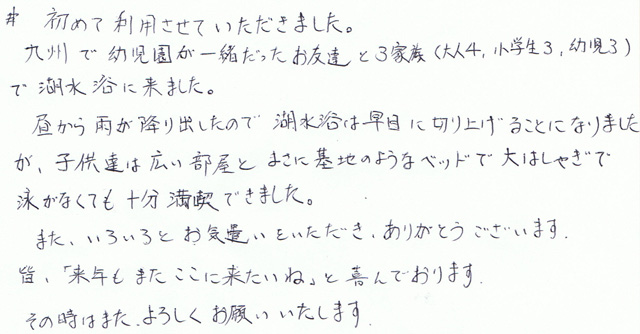 # 初めて利用させていただきました。
九州で幼児園が一緒だったお友達と3家族(大人4, 小学生3, 幼児3)
で湖水浴に来ました。
昼から雨が降り出したので湖水浴は早目に切り上げることになりました
が、子供達は広い部屋とまさに基地のようなベッドで大はしゃぎで
泳がなくても十分満喫できました。
また、いろいろとお気遣いをいただき、ありがとうございます.
皆、「来年もまたここに来たいね」と喜んでおります.
その時はまた、よろしくお願いいたします.